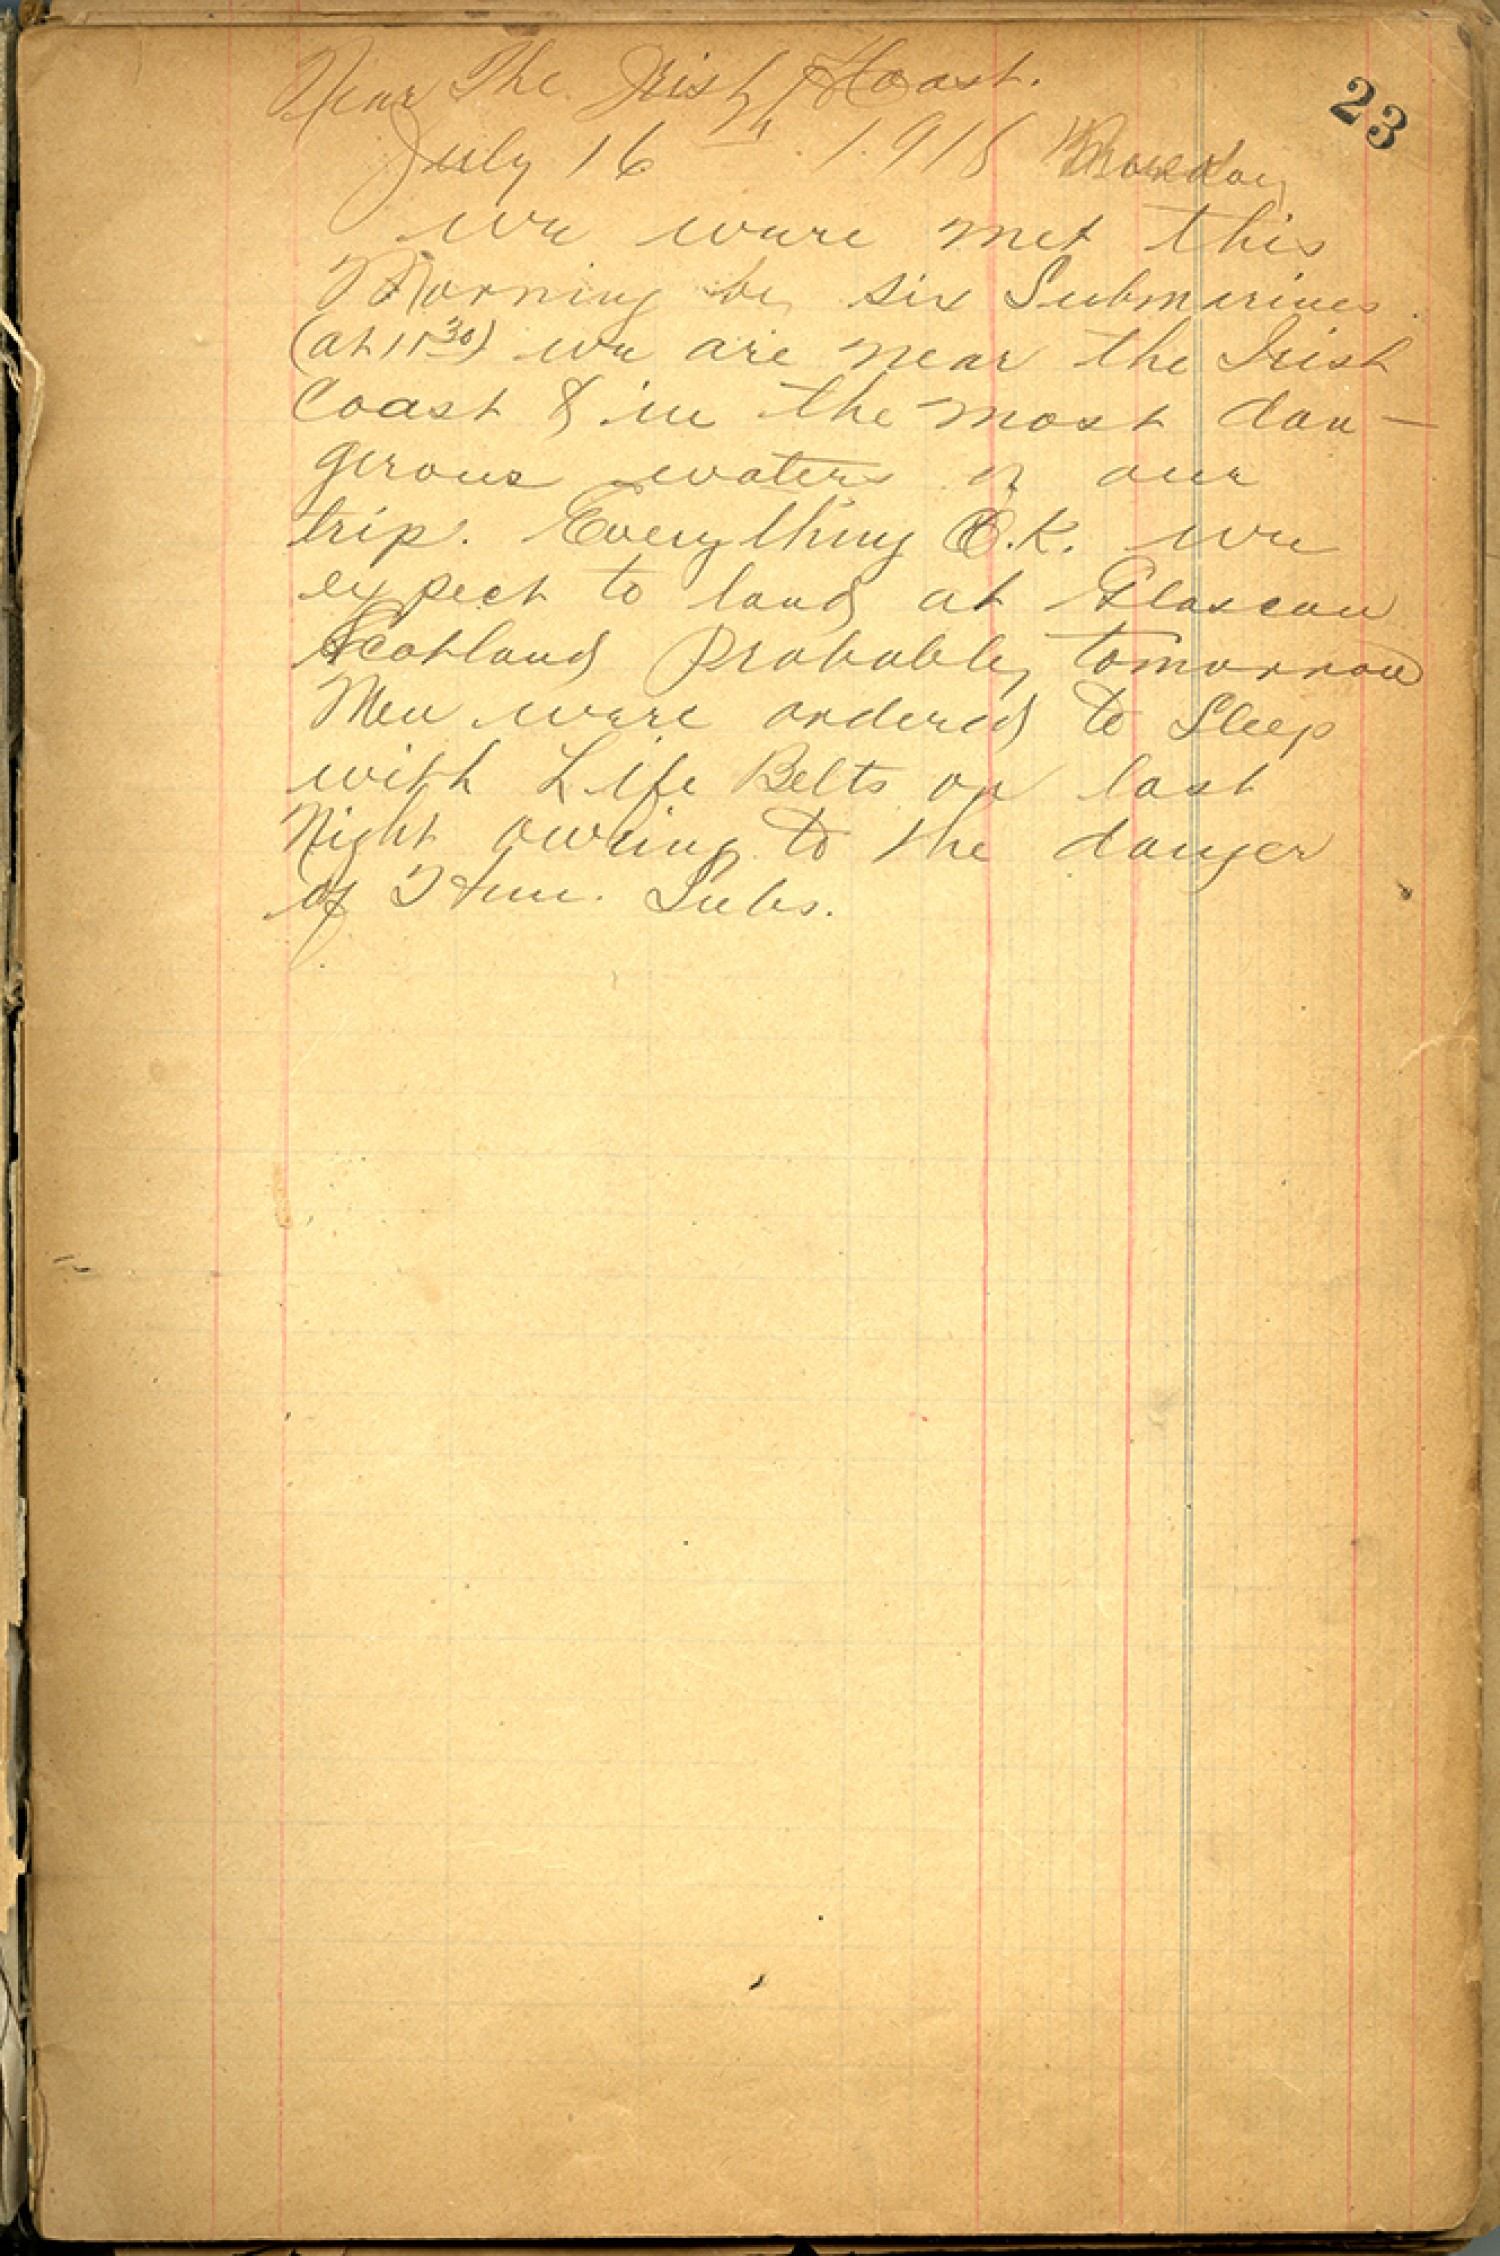 Near The Irish Coast.
23
July 16th 1918 Monday
we were met this
Morning by six Submarines.
(at 11 30) we are near the Irish
Coast & in the most dan-
gerous waters on our
trip. Everything O.K. we
expect to land at Glascow
Scotland Probably tomorrow
Men were ordered to Sleep
with Life Belts on last
Night owing to the danger
of Hun. Subs.